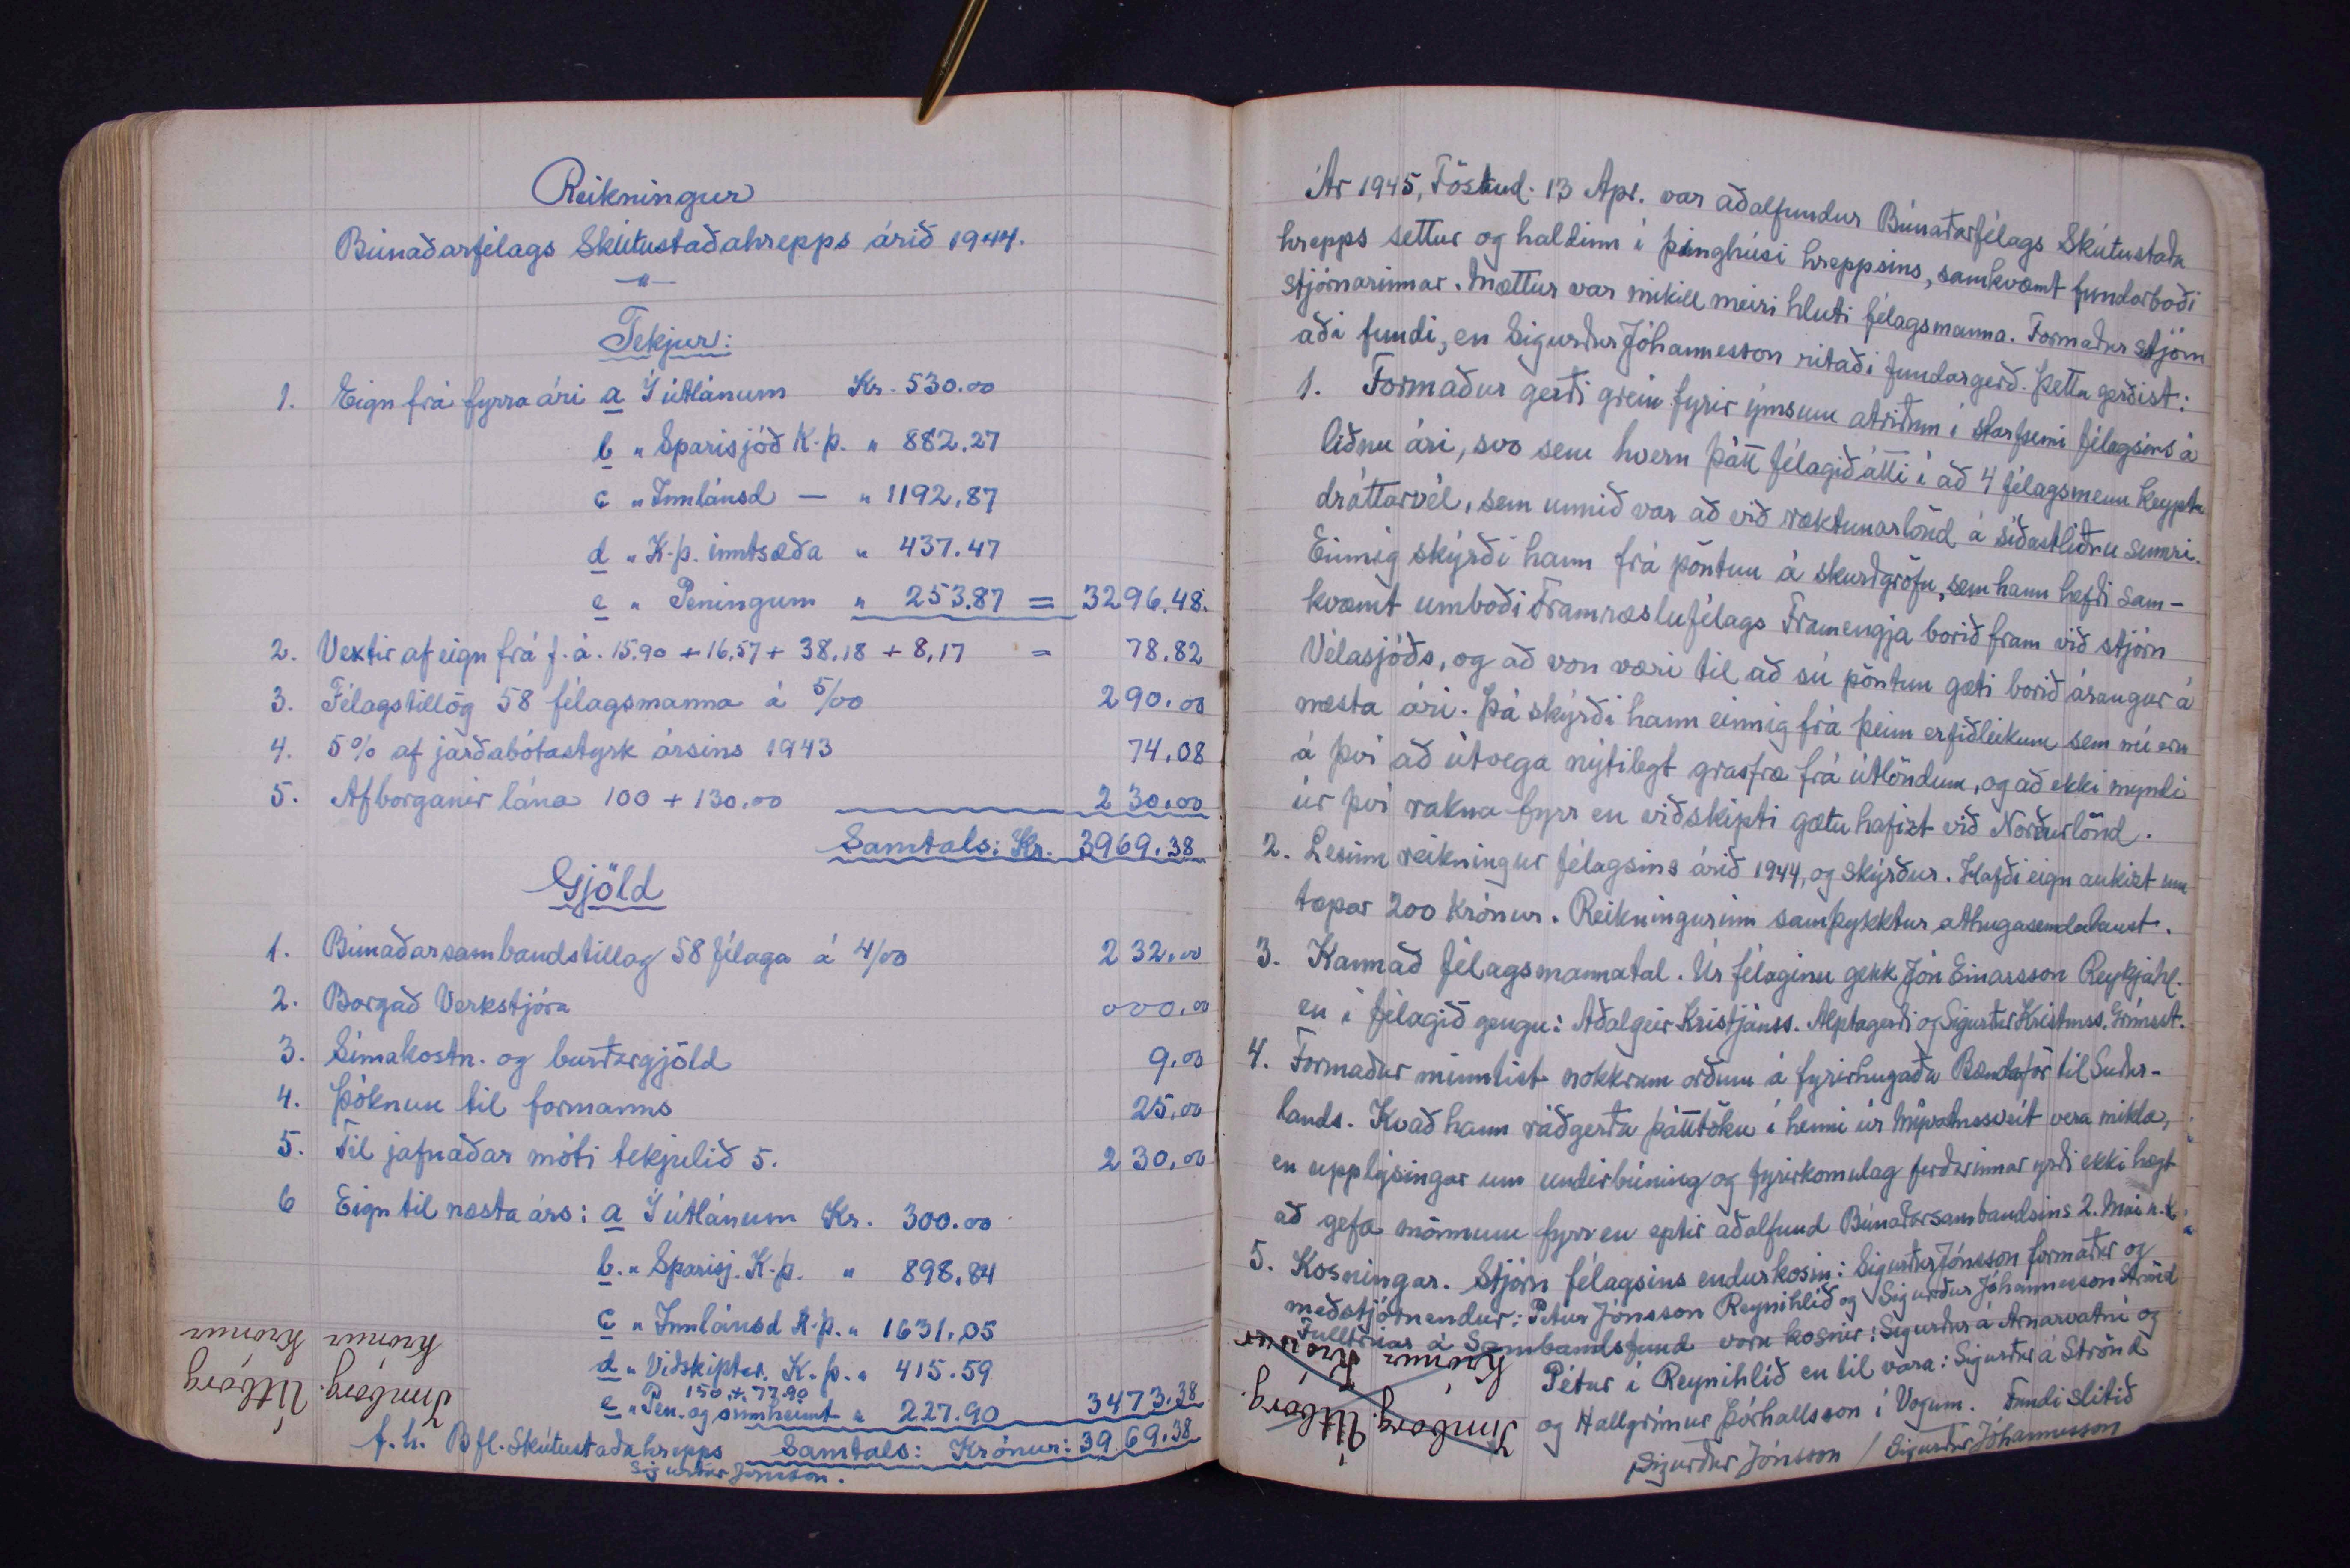 Reikningur
Búnaðarfélags Skútustaðahrepps árið 1944.
—"—
Tekjur:
1. Eign frá fyrra ári a Í útlánum Kr. 530.00
b " Sparisjóð K.þ. " 882,27
c " Innlánsd — " 1192,87
d " K.þ. inntsæða " 437.47
e " Peningum " 253.87 = 3296.48.
2. Vextir af eign frá f.á. 15.90 + 16,57 + 38,18 + 8,17 = 78.82
3. Félagstillög 58 félagsmanna á 5/00 290.00
4. 5% af jarðabótastyrk ársins 1943 74,08
5. Afborganir lána 100 + 130,00 230,00
Samtals: Kr. 3969.38
Gjöld
1. Búnaðarsambandstillag 58 félaga á 4/00 232,00
2. Borgað Verkstjóra 000,00
3. Símakostn. og burðargjöld 9,00
4. Þóknun til formanns 25,00
5. Til jafnaðar móti tekjulið 5. 230,00
6 Eign til næsta árs: a Í útlánum Kr. 300.00
b. " Sparisj. K.þ. " 898,84
c " Innlánsd K.þ. " 1631,05
d " Viðskiptar. K.þ. " 415.59
150 + 77.90
e " Pen. og óinnheimt " 227.90 3473.38
f.h. Bfl. Skútustaðahrepps Samtals: Krónur: 3969.38
Sigurður Jónsson.
Innborg. Útborg
Krónur Krónur
Ár 1945, Föstud. 13 Apr. var aðalfundur Búnaðarfélags Skútustaða
hrepps settur og haldinn í þinghúsi hreppsins, samkvæmt fundarboði
stjórnarinnar. Mættur var mikill meiri hluti félagsmanna. Formaður stjórn
aði fundi, en Sigurður Jóhannesson ritaði fundargerð. Þetta gerðist:
1. Formaður gerði grein fyrir ýmsum atriðum í starfsemi félagsins á
liðnu ári, svo sem hvern þátt félagið átti í að 4 félagsmenn keyptu
dráttarvél, sem unnið var að við ræktunarlönd á síðastliðnu sumri.
Einnig skýrði hann frá pöntun á skurðgröfu, sem hann hefði sam-
kvæmt umboði Framræslufélags Framengja borið fram við stjórn
Vélasjóðs, og að von væri til að sú pöntun gæti borið árangur á
næsta ári. Þá skýrði hann einnig frá þeim erfiðleikum sem nú eru
á því að útvega nýtilegt grasfræ frá útlöndum, og að ekki myndi
úr því rakna fyrr en viðskipti gætu hafizt við Norðurlönd.
2. Lesinn reikningur félagsins árið 1944, og skýrður. Hafði eign aukizt um
tæpar 200 krónur. Reikningurinn samþykktur athugasemdalaust.
3. Kannað félagsmannatal. Úr félaginu gekk Jón Einarsson Reykjahl.
en í félagið gengu: Aðalgeir Kristjánss. Alptagerði og Sigurður Kristinss. Grímsst.
4. Formaður minntist nokkrum orðum á fyrirhugaða Bændaför til Suður-
lands. Kvað hann ráðgerða þátttöku í henni úr Mývatnssveit vera mikla,
en upplýsingar um undirbúning og fyrirkomulag ferðarinnar yrði ekki hægt
að gefa mönnum fyrr en eptir aðalfund Búnaðarsambandsins 2. Maí n.k.
5. Kosningar. Stjórn félagsins endurkosin: Sigurður Jónsson formaður og
meðstjórnendur: Pétur Jónsson Reynihlíð og Sigurður Jóhannesson Strönd
Fulltrúar á Sambandsfund voru kosnir: Sigurður á Arnarvatni og
Pétur í Reynihlíð en til vara: Sigurður á Strönd
og Hallgrímur Þórhallsson í Vogum. Fundi slitið
Sigurður Jónsson / Sigurður Jóhannesson
Innborg. Útborg.
Krónur Krónur